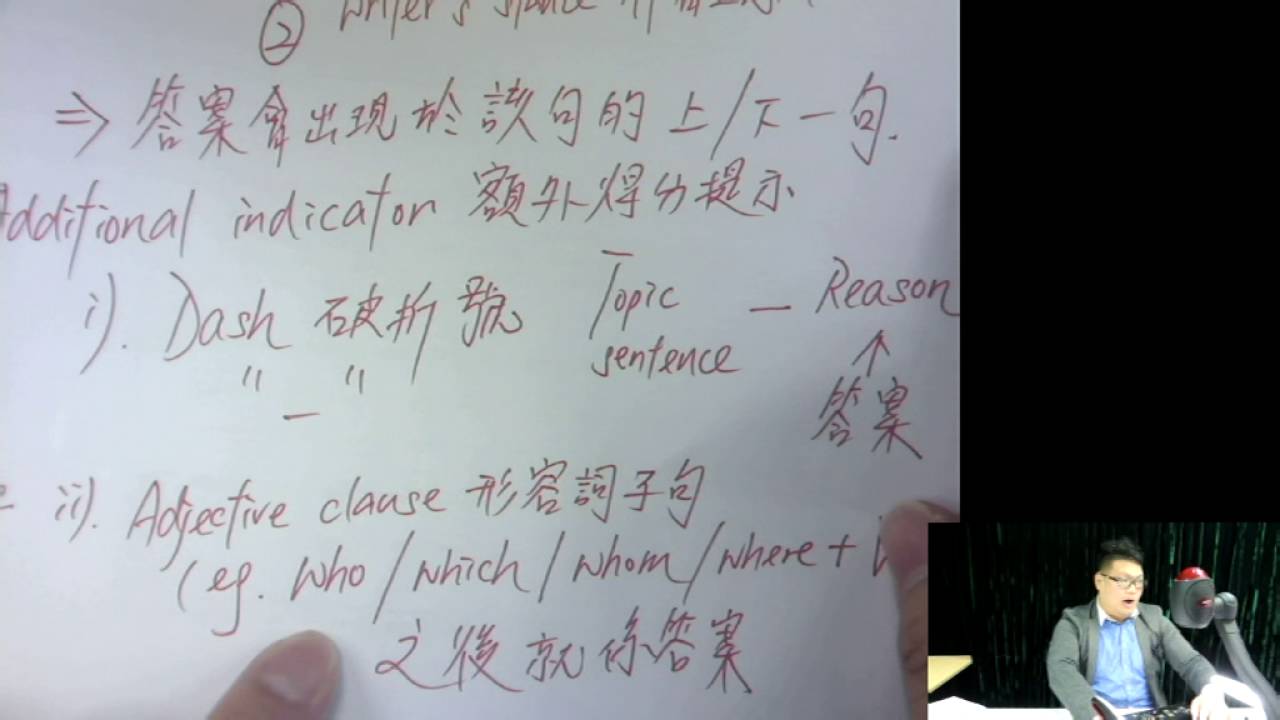 ② writer's stance
⇒ 答案會出現於該句的上/下一句.
Additional indicator 額外得分提示
i). Dash 破折號 Topic — Reason
sentence ↑
" — " 答案
ii). Adjective clause 形容詞子句
(eg. who/which/whom/where +
之後就係答案